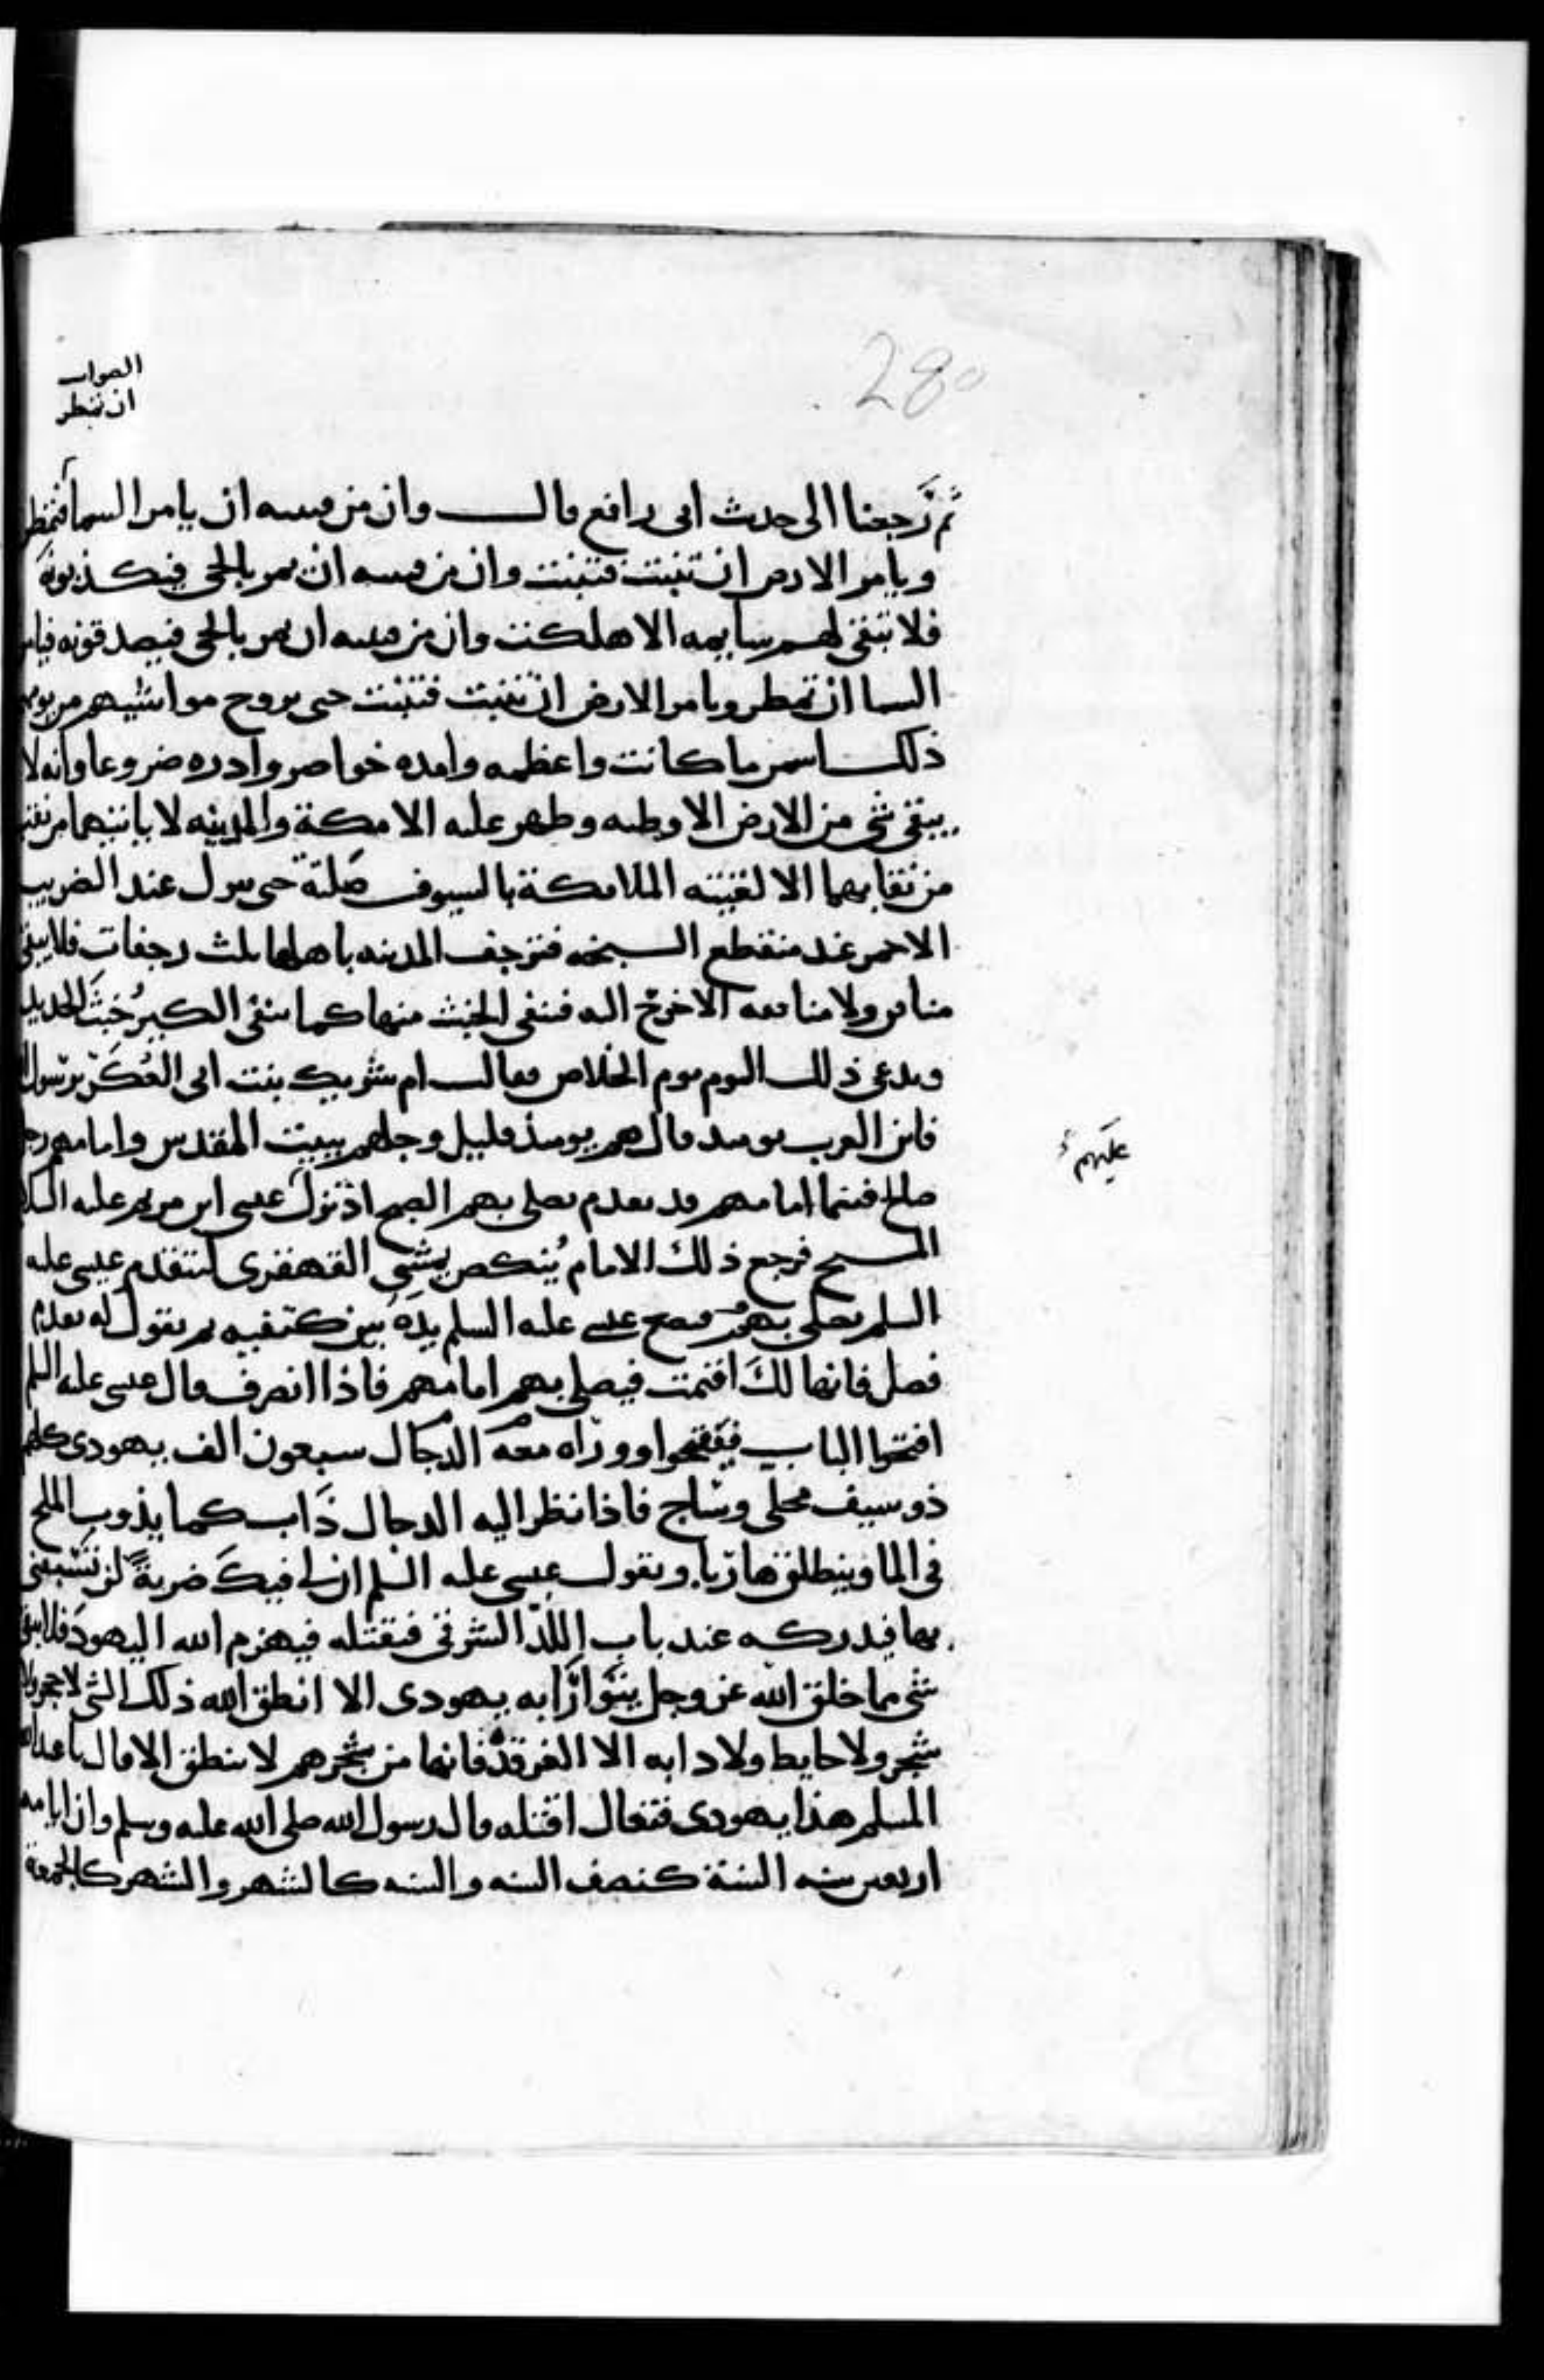 280
الصواب
ان تمطر
ثم رجعنا الى حديث ابى رافع قال وان من فتنته ان يامر السما فتمطر
ويامر الارض ان تنبت فتنبت وان من فتنته ان يمر بالحى فيكذبونه
فلا تبقى لهم سايمه الا هلكت وان من فتنته ان يمر بالحى فيصدقونه فيامر
السما ان تمطر ويامر الارض ان تنبت فتنبت حتى تروح مواشيهم من يومهم
ذلك اسمن ما كانت واعظمه وامده خواصر وادره ضروعا وانه لا
يبقى شى من الارض الا وطيه وظهر عليه الا مكة والمدينه لا ياتيهما من نقب
من نقابهما الا لقيته الملايكة بالسيوف صلتة حتى ينزل عند الضريب
الاحمر عند منقطع السبخه فترجف المدينه باهلها ثلث رجفات فلا يبقى
منافق ولا منافقه الا خرج اليه فتنفى الخبث منها كما ينفى الكير خبث الحديد
ويدعى ذلك اليوم يوم الخلاص فقالت ام شريك بنت ابى العكر يرسول
فاين العرب يوميذ قال هم يوميذ قليل وجلهم ببيت المقدس وامامهم رجل
صالح فبينما امامهم قد تقدم يصلى بهم الصبح اذ نزل عيسى ابن مريم عليه السلم
عليهم
الصبح فرجع ذلك الامام ينكص يمشى القهقرى ليتقدم عيسى عليه
السلم يصلى بهم فيضع عيسى عليه السلم يده بين كتفيه ثم يقول له تقدم
فصل فانها لك اقيمت فيصلى بهم امامهم فاذا انصرف قال عيسى عليه السلم
افتحوا الباب فيفتحوا ووراه معه الدجال سبعون الف يهودى كلهم
ذو سيف محلى وساج فاذا نظر اليه الدجال ذاب كما يذوب الملح
فى الما وينطلق هاربا ويقول عيسى عليه السلم ان لى فيك ضربة لن تسبقنى
بها فيدركه عند باب اللد الشرقى فيقتله فيهزم الله اليهود فلا يبقى
شى مما خلق الله عز وجل يتوارا به يهودى الا انطق الله ذلك الشى لا حجر ولا
شجر ولا حايط ولا دابه الا الغرقده فانها من شجرهم لا تنطق الا قال يا عبد الله
المسلم هذا يهودى فتعال اقتله قال رسول الله صلى الله عليه وسلم وان ايامه
اربعين سنه السنة كنصف السنه والسنه كالشهر والشهر كالجمعة